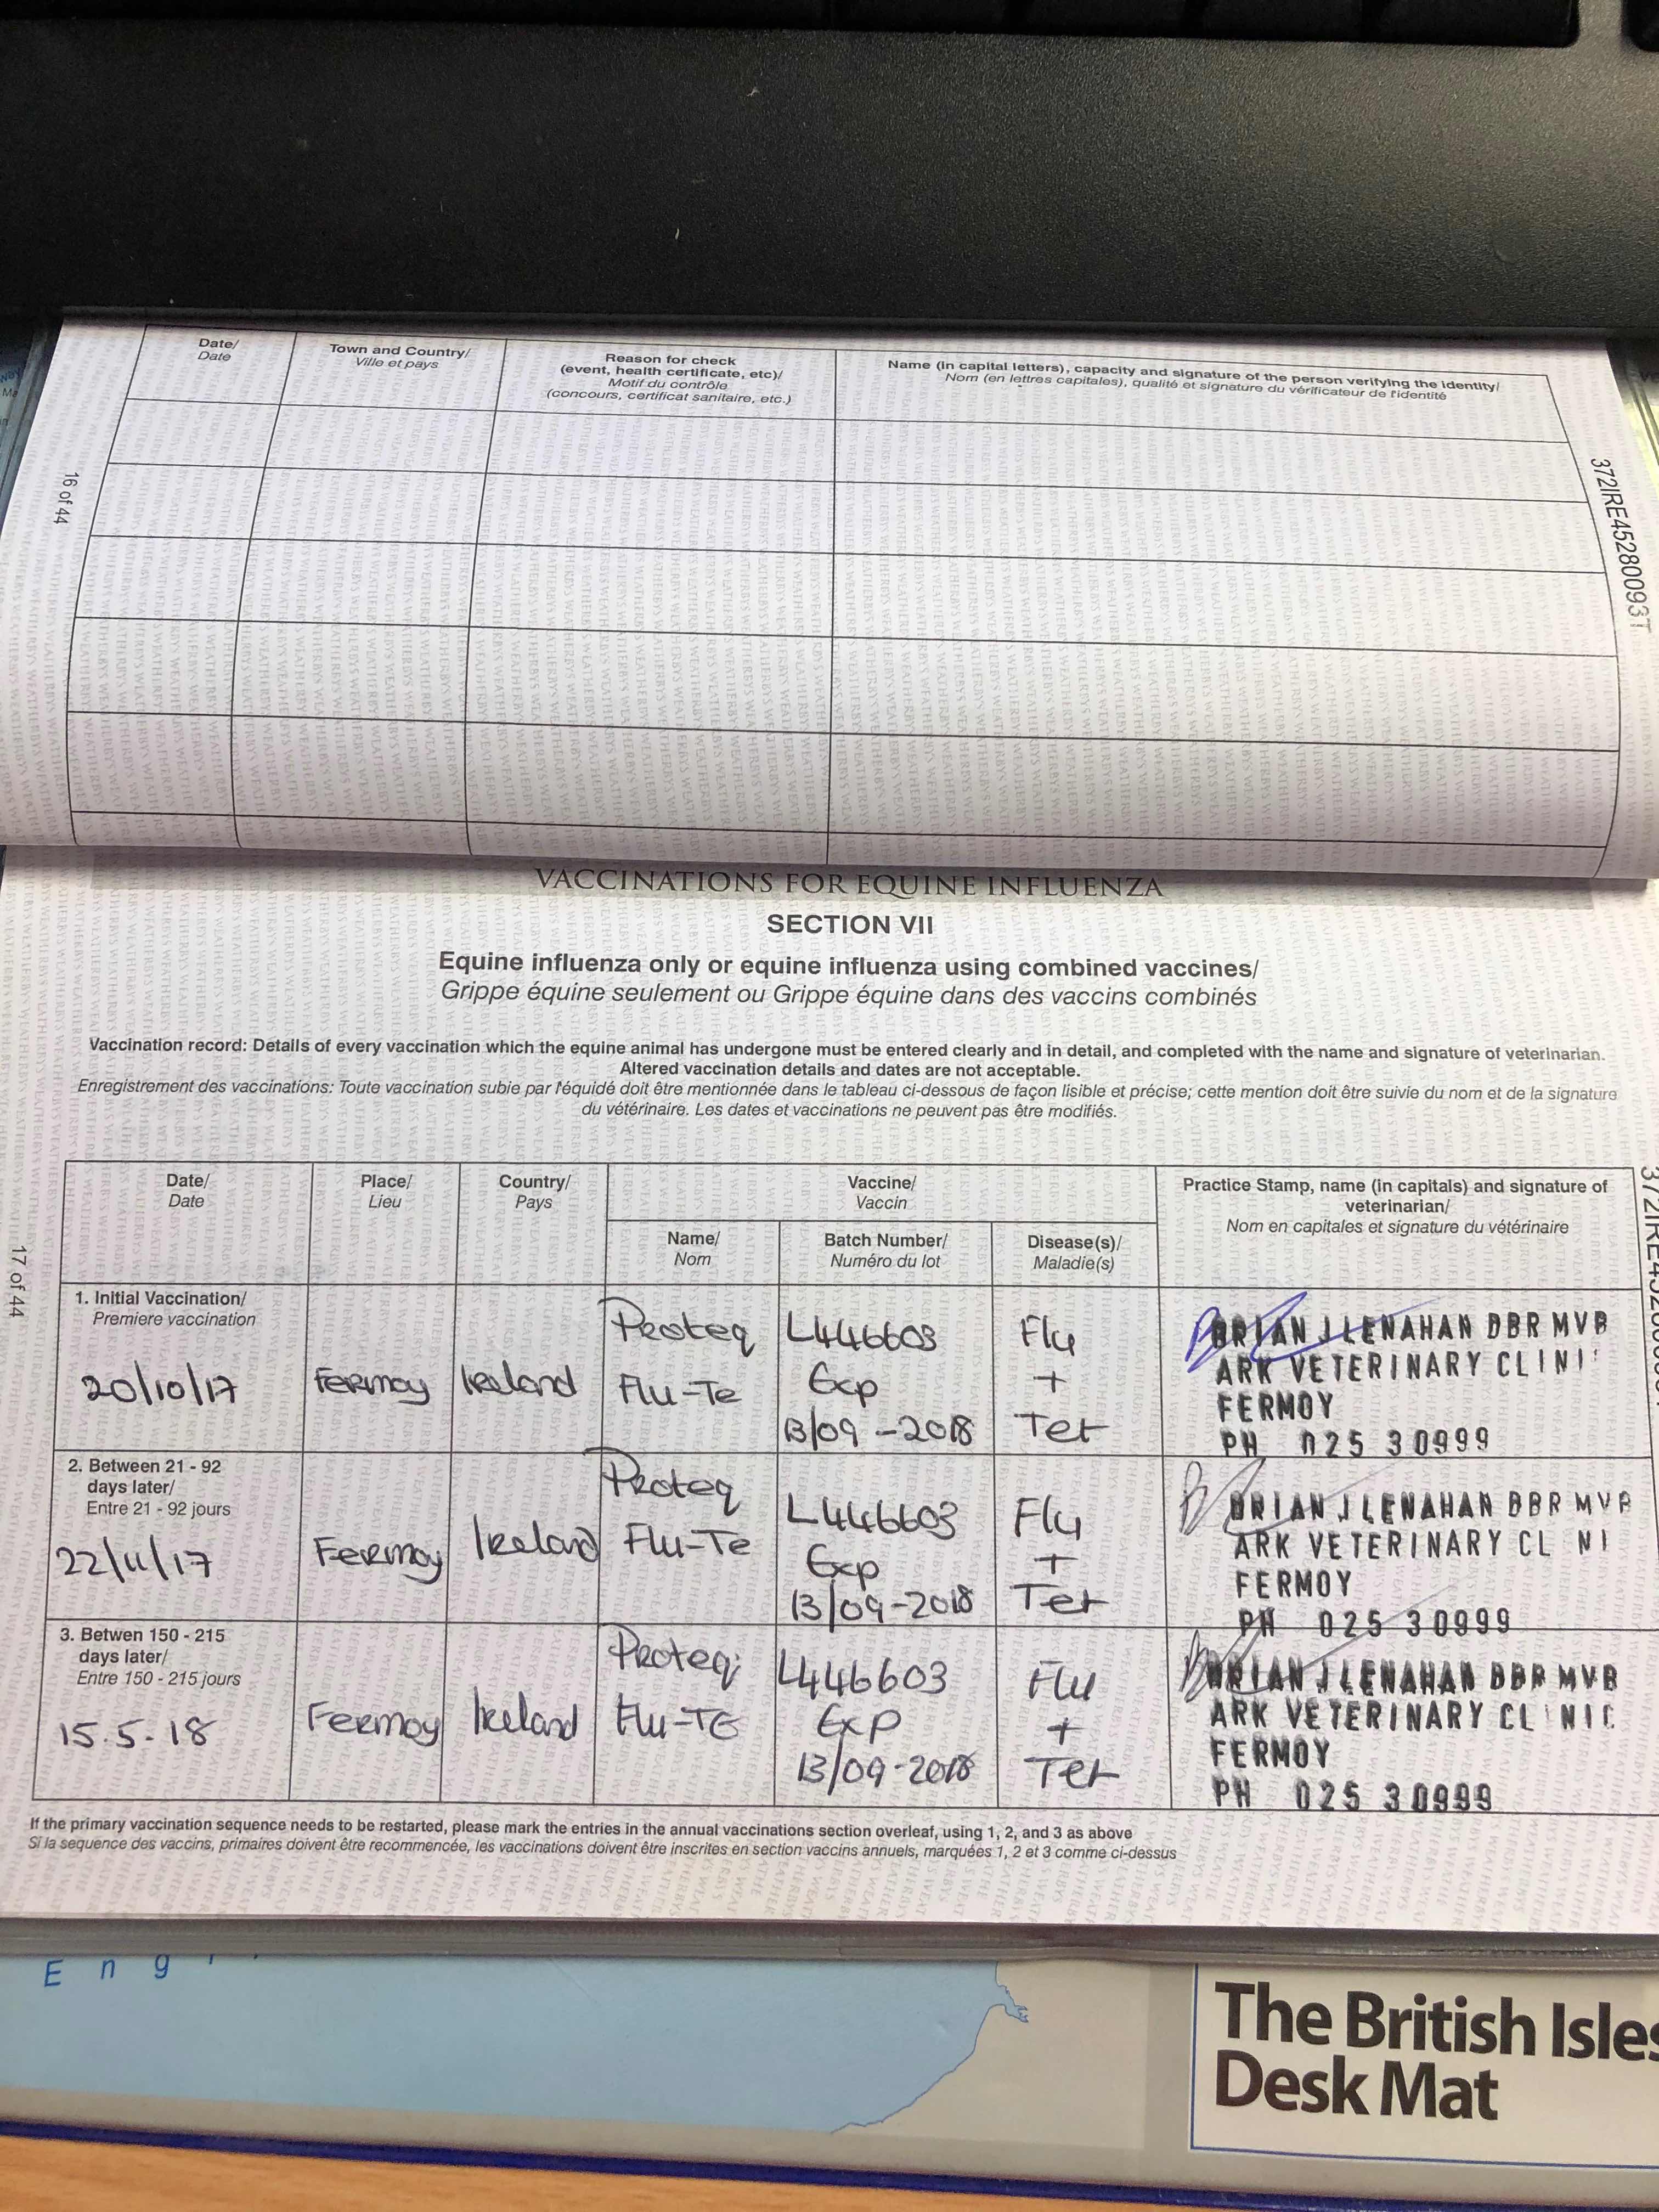 Date/
Date
Town and Country/
Ville et pays
Reason for check
(event, health certificate, etc)/
Motif du contrôle
(concours, certificat sanitaire, etc.)
Name (in capital letters), capacity and signature of the person verifying the identity/
Nom (en lettres capitales), qualité et signature du vérificateur de l'identité
16 of 44
372IRE45280093T
VACCINATIONS FOR EQUINE INFLUENZA
SECTION VII
Equine influenza only or equine influenza using combined vaccines/
Grippe équine seulement ou Grippe équine dans des vaccins combinés
Vaccination record: Details of every vaccination which the equine animal has undergone must be entered clearly and in detail, and completed with the name and signature of veterinarian.
Altered vaccination details and dates are not acceptable.
Enregistrement des vaccinations: Toute vaccination subie par l'équidé doit être mentionnée dans le tableau ci-dessous de façon lisible et précise; cette mention doit être suivie du nom et de la signature
du vétérinaire. Les dates et vaccinations ne peuvent pas être modifiés.
17 of 44
Date/
Date
Place/
Lieu
Country/
Pays
Vaccine/
Vaccin
Name/
Nom
Batch Number/
Numéro du lot
Disease(s)/
Maladie(s)
Practice Stamp, name (in capitals) and signature of
veterinarian/
Nom en capitales et signature du vétérinaire
1. Initial Vaccination/
Premiere vaccination
20/10/17
Fermoy
Ireland
Proteq
Flu-Te
L446603
Exp
13/09-2018
Flu
+
Tet
BRIAN J LENAHAN DBR MVB
ARK VETERINARY CLINI
FERMOY
PH 025 30999
2. Between 21 - 92
days later/
Entre 21 - 92 jours
22/11/17
Fermoy
Ireland
Proteq
Flu-Te
L446603
Exp
13/09-2018
Flu
+
Tet
BRIAN J LENAHAN DBR MVB
ARK VETERINARY CL NI
FERMOY
PH 025 30999
3. Betwen 150 - 215
days later/
Entre 150 - 215 jours
15.5.18
Fermoy
Ireland
Proteq
Flu-TE
L446603
Exp
13/09-2018
Flu
+
Tet
BRIAN J LENAHAN DBR MVB
ARK VETERINARY CLINIC
FERMOY
PH 025 30999
If the primary vaccination sequence needs to be restarted, please mark the entries in the annual vaccinations section overleaf, using 1, 2, and 3 as above
Si la sequence des vaccins, primaires doivent être recommencée, les vaccinations doivent être inscrites en section vaccins annuels, marquées 1, 2 et 3 comme ci-dessus
Eng
The British Isles
Desk Mat